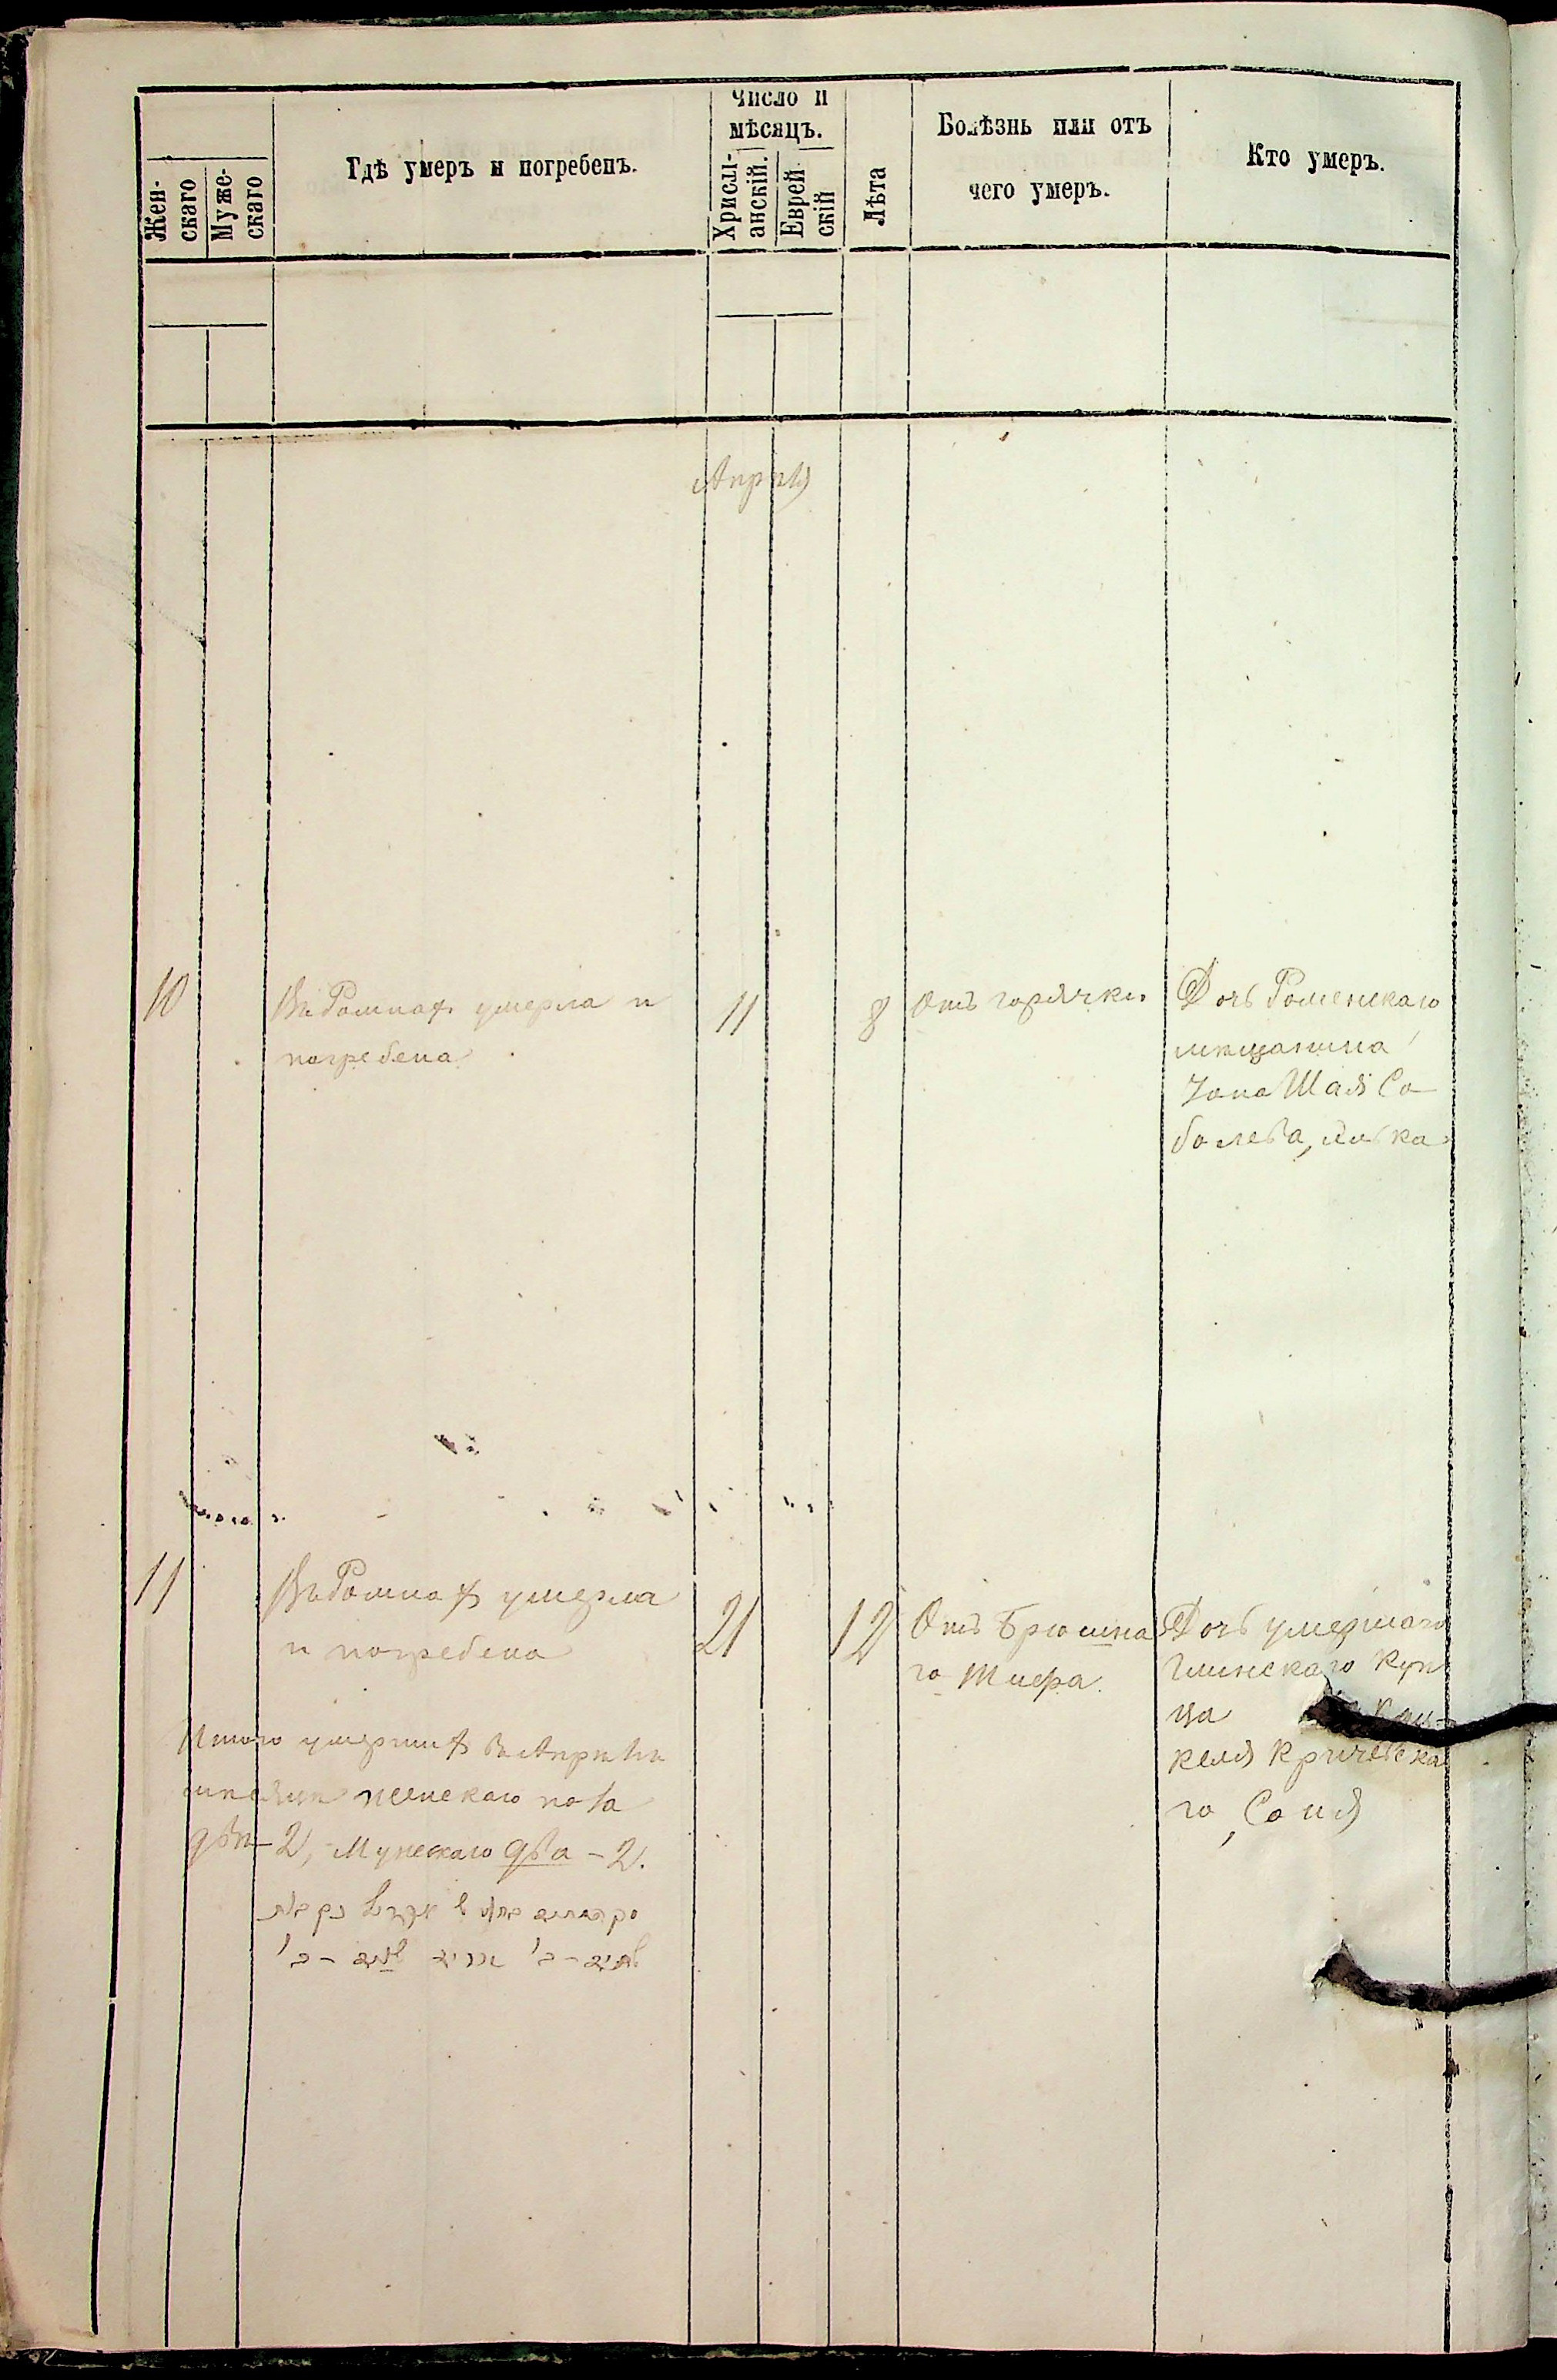 Жен-
скаго
Муже-
скаго
Гдѣ умеръ и погребенъ.
Число и
мѣсяцъ.
Христі-
анскій.
Еврей
скій
Лѣта
Болѣзнь или отъ
чего умеръ.
Кто умеръ.
Апрѣля
10
Въ Ромнахъ умерла и
погребена
11
8
Отъ горячки
Дочь Роменскаго
мѣщанина
Шая Со
болева,
11
Въ Ромнахъ умерла
и погребена
21
12
Отъ Брюшна
го Тифа.
Дочь умершаго
Глинскаго Куп
ца
келя Кричевска
го, Соня
Итого умершихъ въ Апрѣлѣ
мѣсяцѣ женскаго пола
двѣ - 2, Мужескаго два - 2.